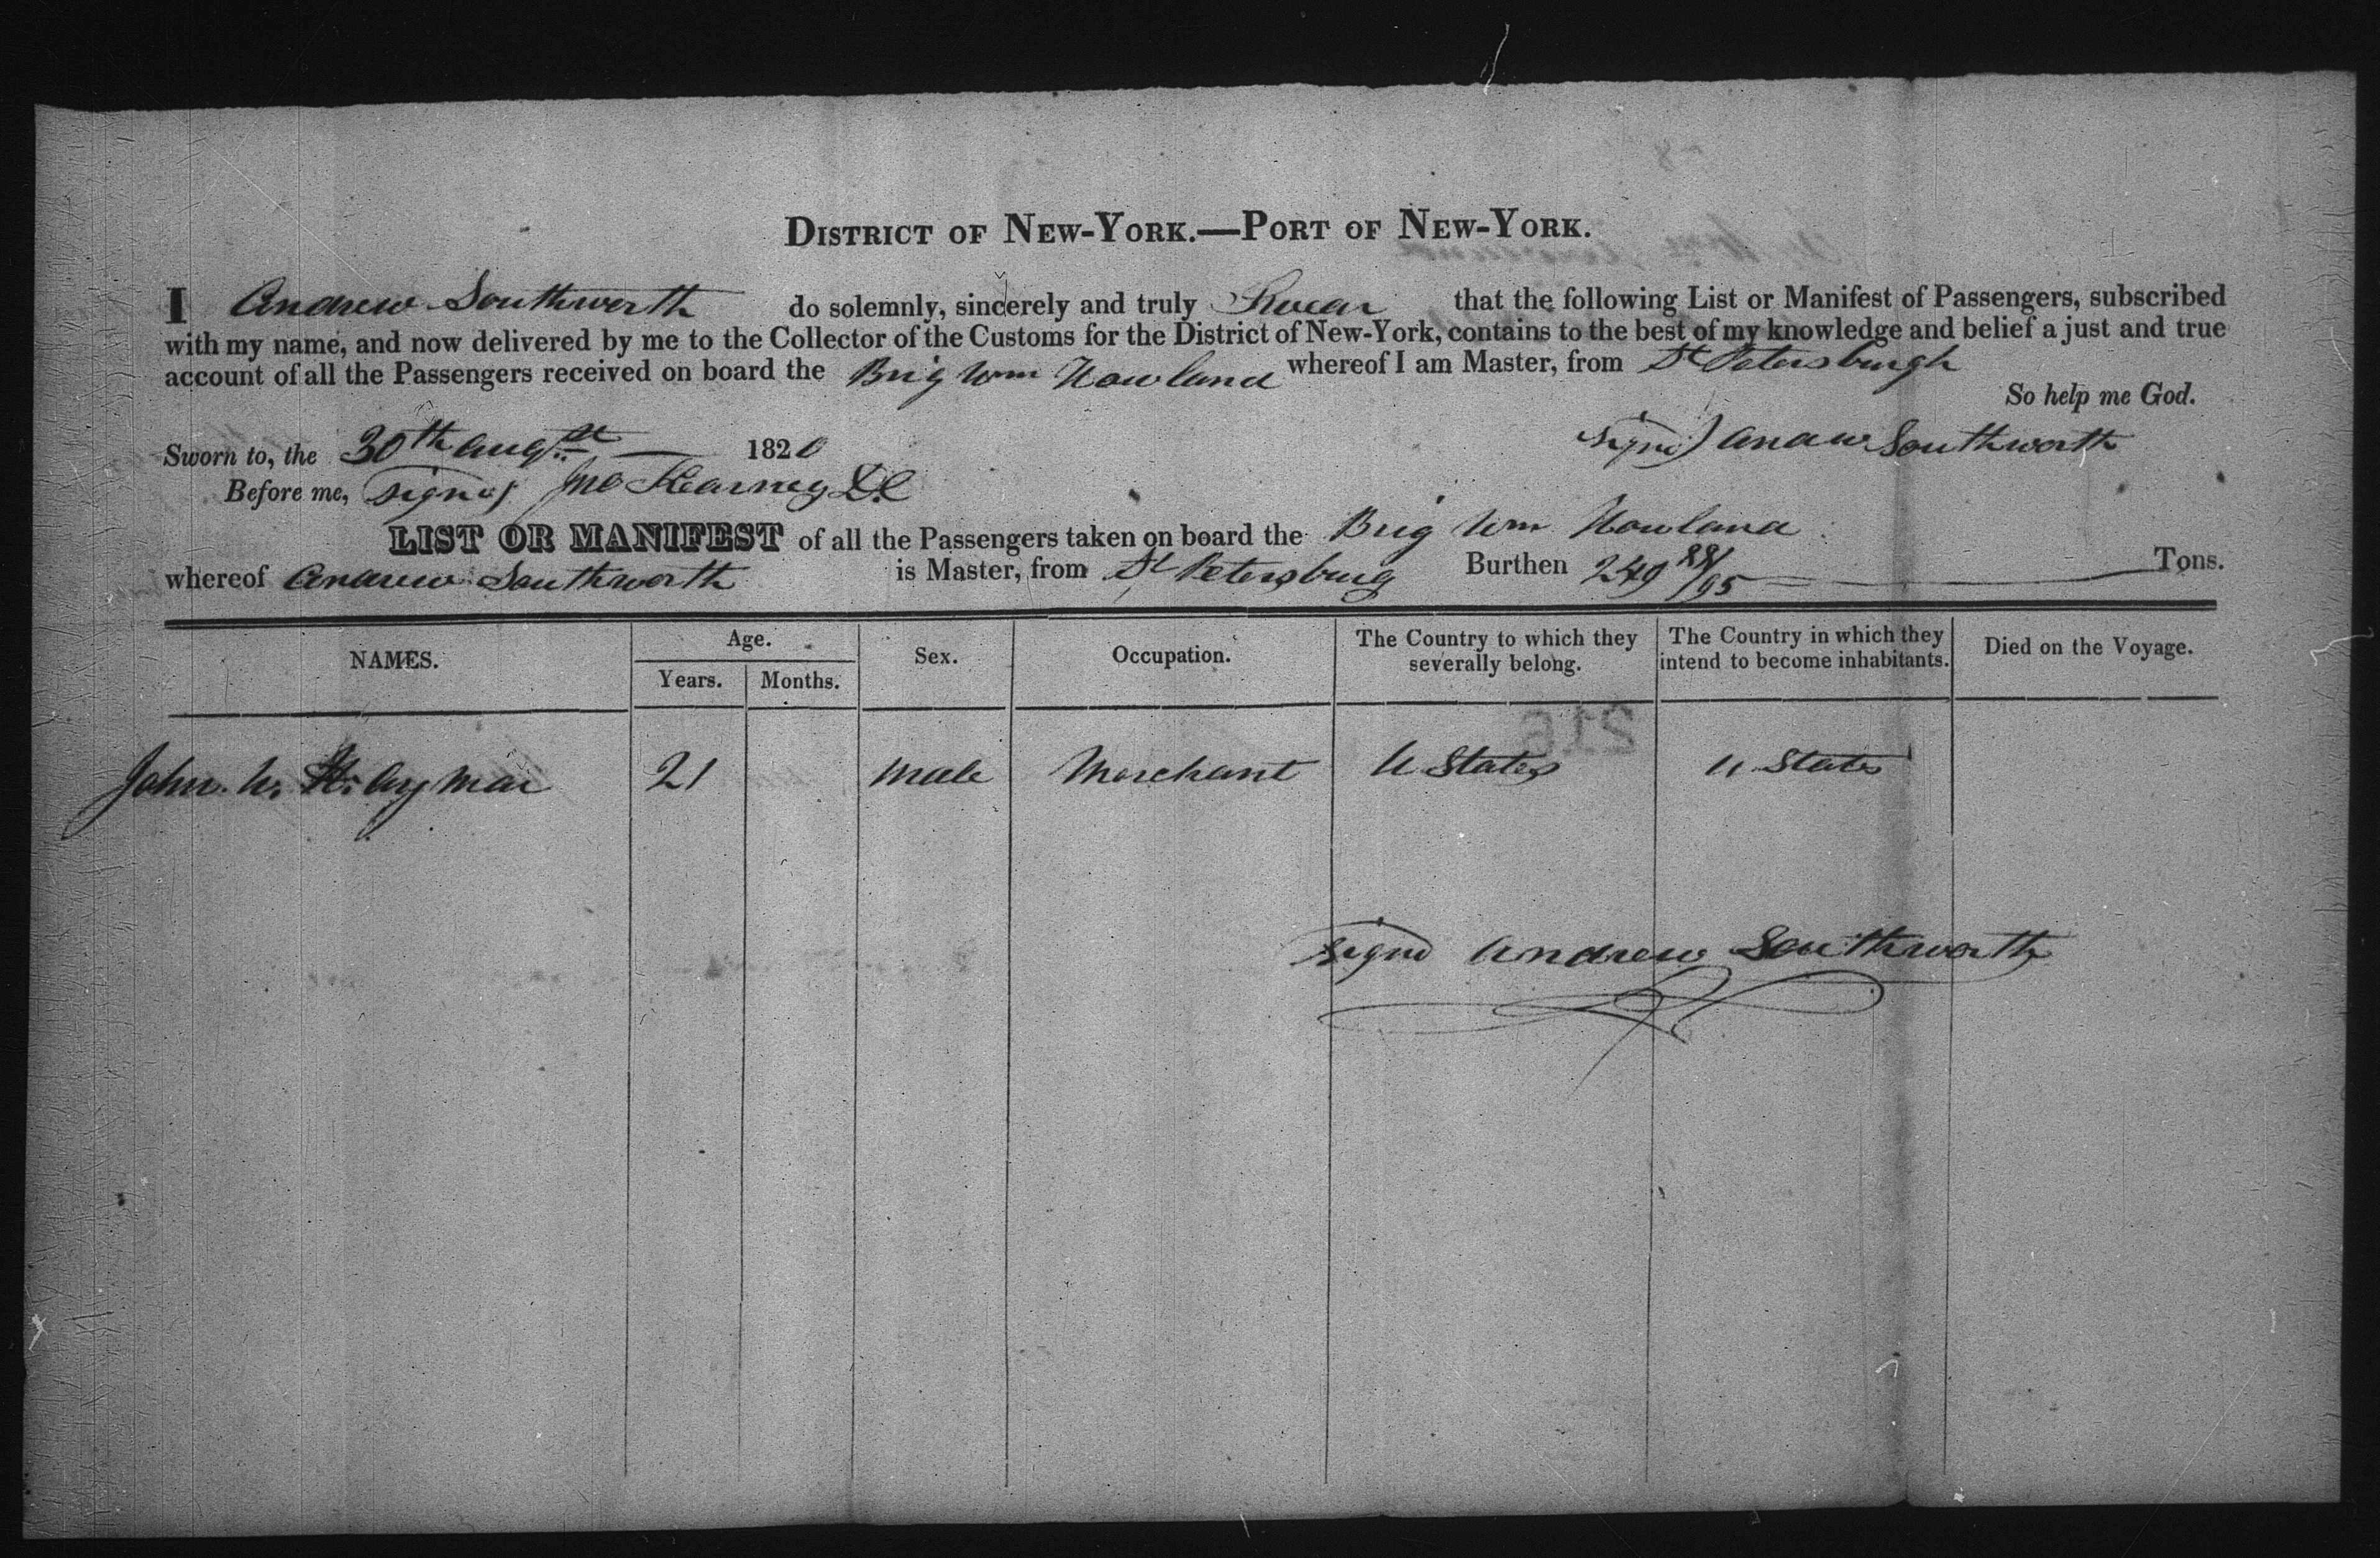 DISTRICT OF NEW-YORK.—PORT OF NEW-YORK.
I Andrew Southworth do solemnly, sincerely and truly Swear that the following List or Manifest of Passengers, subscribed
with my name, and now delivered by me to the Collector of the Customs for the District of New-York, contains to the best of my knowledge and belief a just and true
account of all the Passengers received on board the Brig Wm Howland whereof I am Master, from St Petersburgh
So help me God.
Sworn to, the 30th augst 1820 signd) Andw Southworth
Before me, signd) Jno Kearney DC
LIST OR MANIFEST of all the Passengers taken on board the Brig Wm Howland
whereof Andrew Southworth is Master, from St Petersburg Burthen 249 88/95 Tons.
NAMES. Age. Sex. Occupation. The Country to which they severally belong. The Country in which they intend to become inhabitants. Died on the Voyage.
Years. Months.
John. W. aymar 21 male Merchant U States U States
signd Andrew Southworth
216